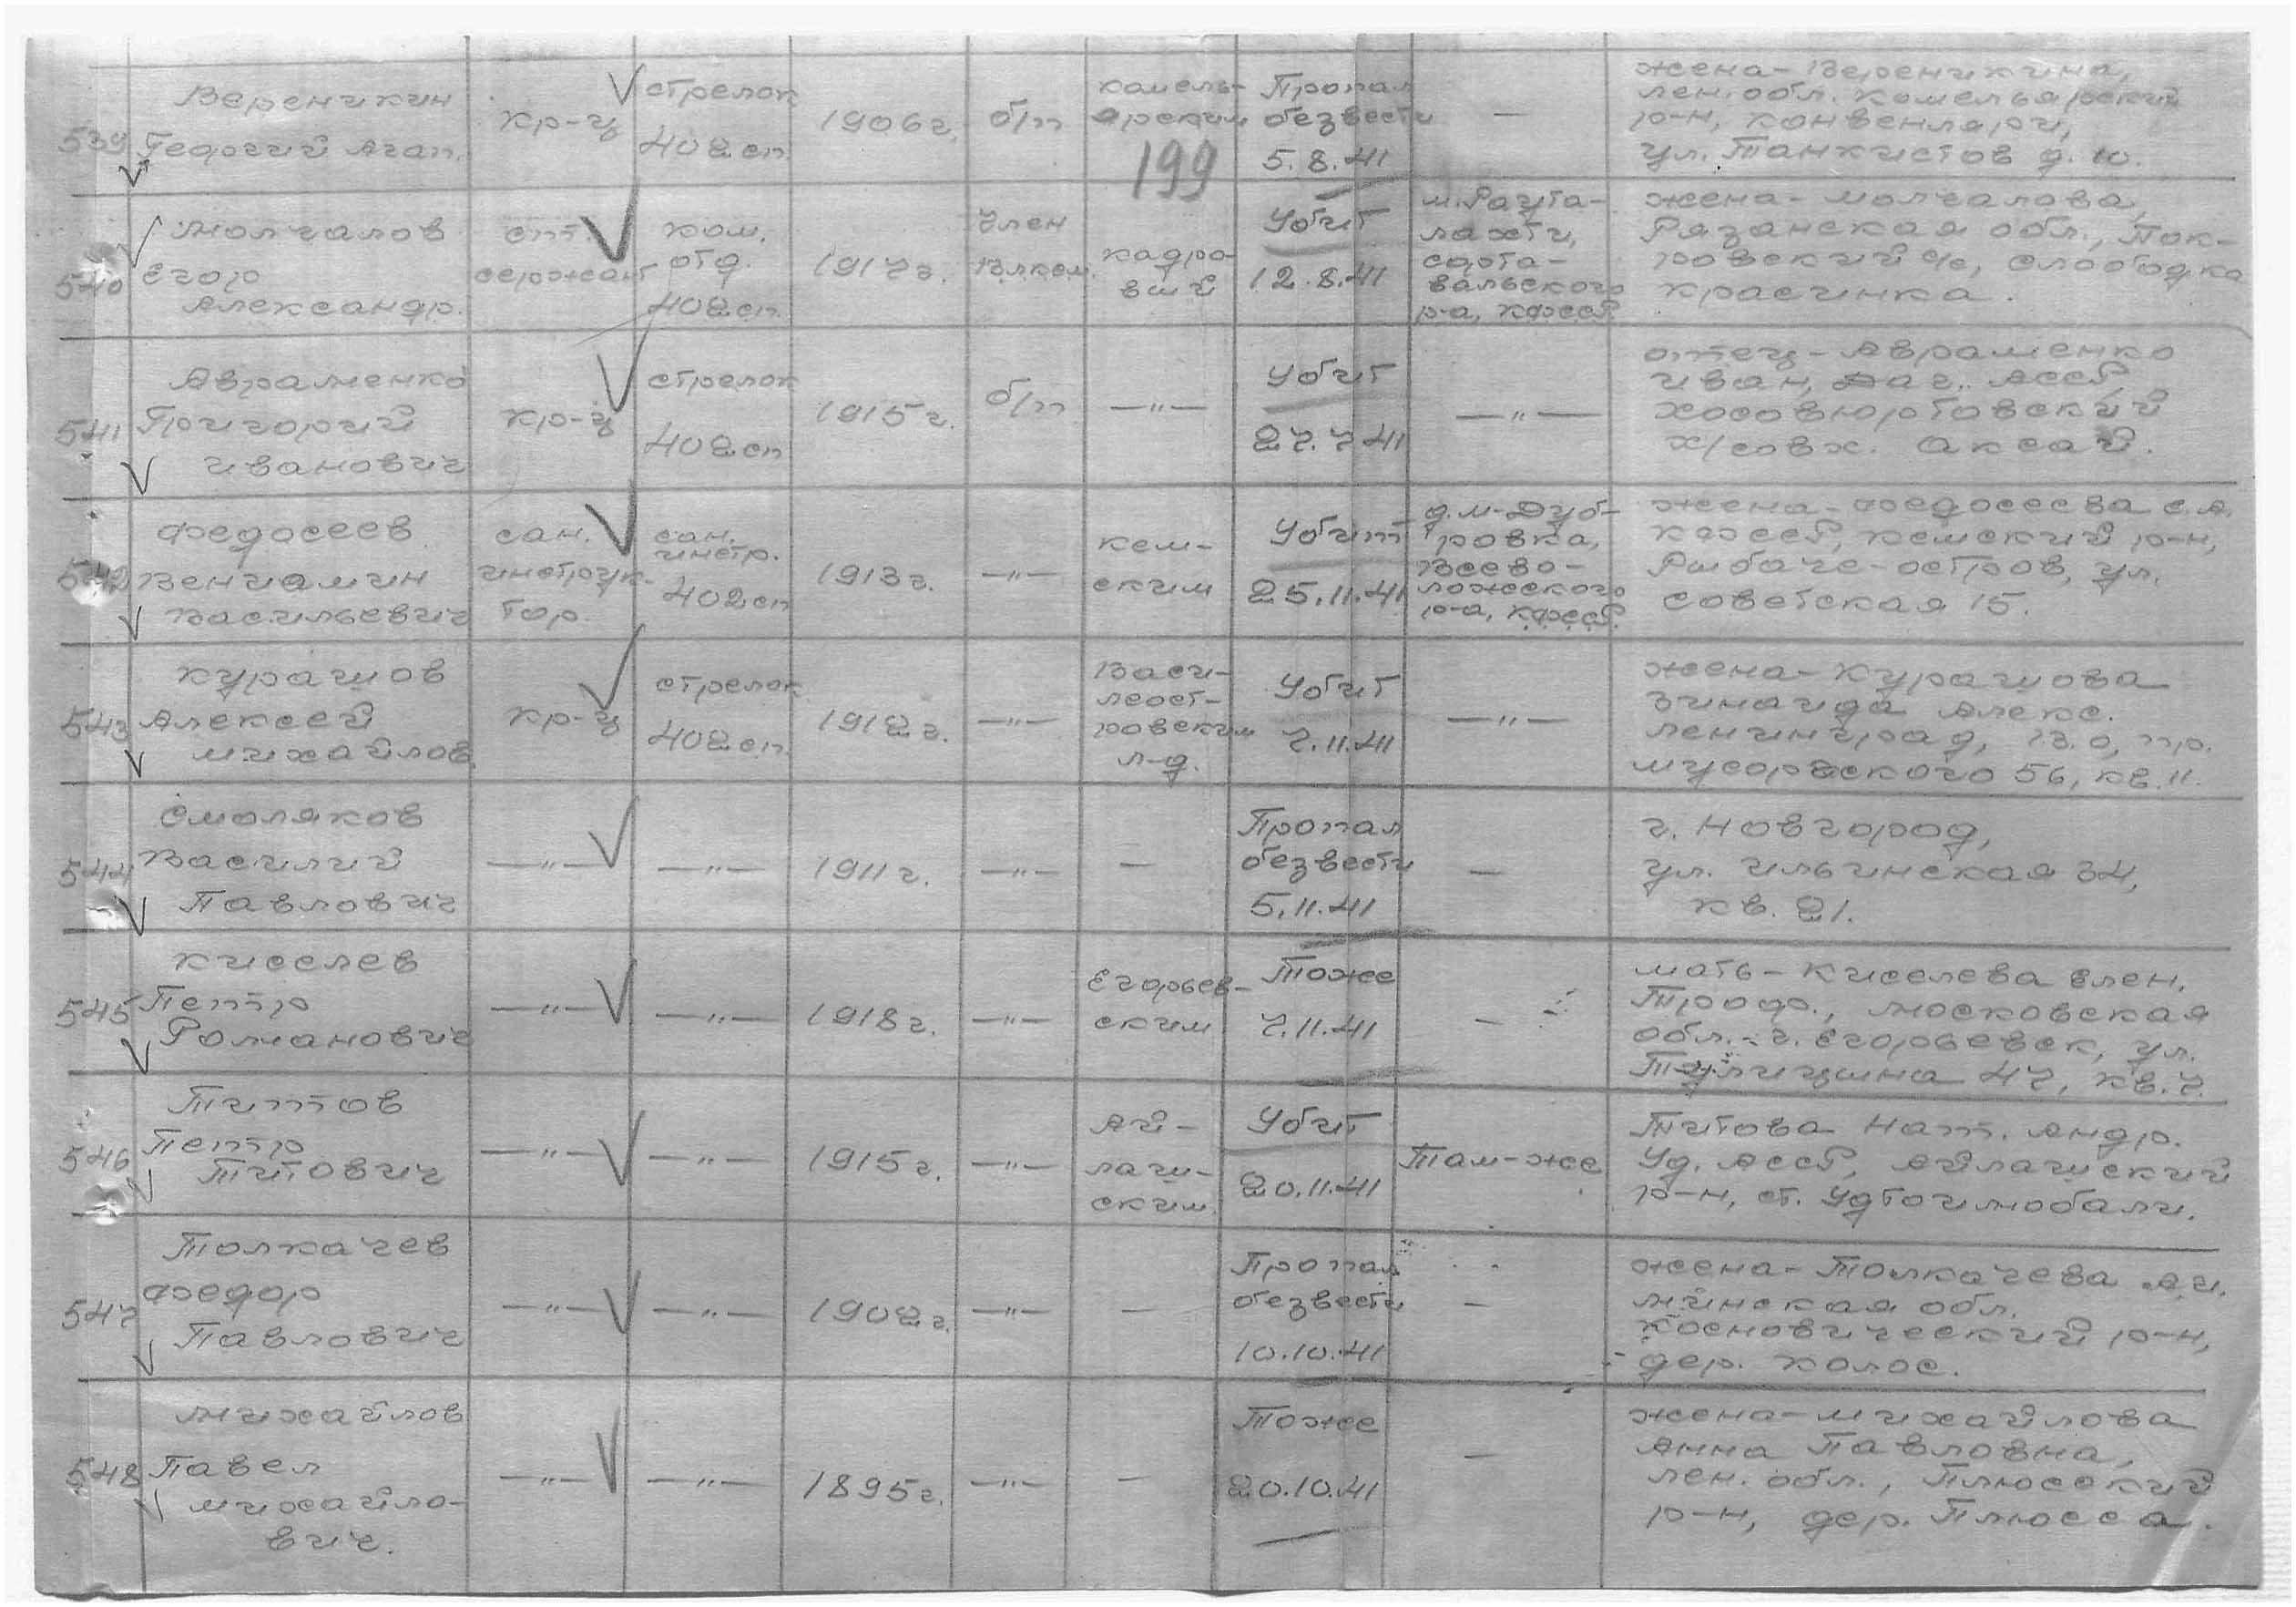 539
Вереникин
Георгий Агап.
кр-ц
стрелок
402 сп.
1906 г.
б/п
Комель-
ярским
199
Пропал
безвести
5.8.41
—
жена - Вереникина,
лен. обл. Комельярский
р-н, Конвенляри,
ул. Танкистов д. 10.
540
Молчалов
Егор
Александр.
ст.
сержант
ком.
отд.
402 сп.
1917 г.
Член
ВЛКСМ.
кадро-
вый
Убит
12.8.41
м. Раута-
лахти,
Сорта-
вальского
р-а, КФССР.
жена - Молчалова,
Рязанская обл., Пок-
ровский с/с, слободка
Красинка.
541
Авраменко
Григорий
Иванович
кр-ц
стрелок
402 сп
1915 г.
б/п
—"—
Убит
27.7.41
—"—
отец - Авраменко
Иван, Даг. АССР,
Хосовюртовский
х/совх. Аксай.
542
Федосеев
Вениамин
Васильевич
сан.
инструк-
тор.
сан.
инстр.
402 сп
1913 г.
—"—
Кем-
ским
Убит
25.11.41
д. М-Дуб-
ровка,
Всево-
ложского
р-а, КФССР.
жена - Федосеева С.А.
КФССР, Кемский р-н,
Рыбаче-остров, ул.
Советская 15.
543
Курашов
Алексей
Михайлов.
кр-ц
стрелок
402 сп.
1912 г.
—"—
Васи-
леост-
ровским
л-д.
Убит
7.11.41
—"—
жена - Курашова
Зинаида Алекс.
Ленинград, В.О, пр.
Мусоргского 56, кв. 11.
544
Смоляков
Василий
Павлович
—"—
—"—
1911 г.
—"—
—
Пропал
безвести
5.11.41
—
г. Новгород,
ул. Ильинская 34,
кв. 21.
545
Киселев
Петр
Романович
—"—
—"—
1918 г.
—"—
Егорьев-
ским
Тоже
7.11.41
—
мать - Киселева Елен.
Троф., Московская
обл. - г. Егорьевск, ул.
Тупицына 47, кв. 7.
546
Титов
Петр
Титович
—"—
—"—
1915 г.
—"—
Ай-
лаш-
ским.
Убит
20.11.41
Там-же
Титова Нат. Андр.
Уд. АССР, Айлашский
р-н, ст.
547
Толкачев
Федор
Павлович
—"—
—"—
1902 г.
—"—
—
Пропал
безвести
10.10.41
—
жена - Толкачева А.И.
Минская обл.
Косновический р-н,
дер. Колос.
548
Михайлов
Павел
Михайло-
вич.
—"—
—"—
1895 г.
—"—
—
Тоже
20.10.41
—
жена - Михайлова
Анна Павловна,
Лен. обл., Плюсский
р-н, дер. Плюсса.